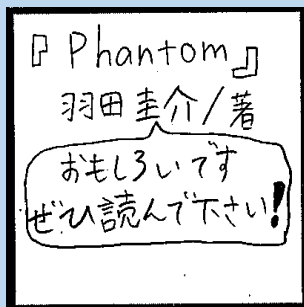 『Phantom』
羽田圭介/著
おもしろいです
ぜひ読んで下さい!